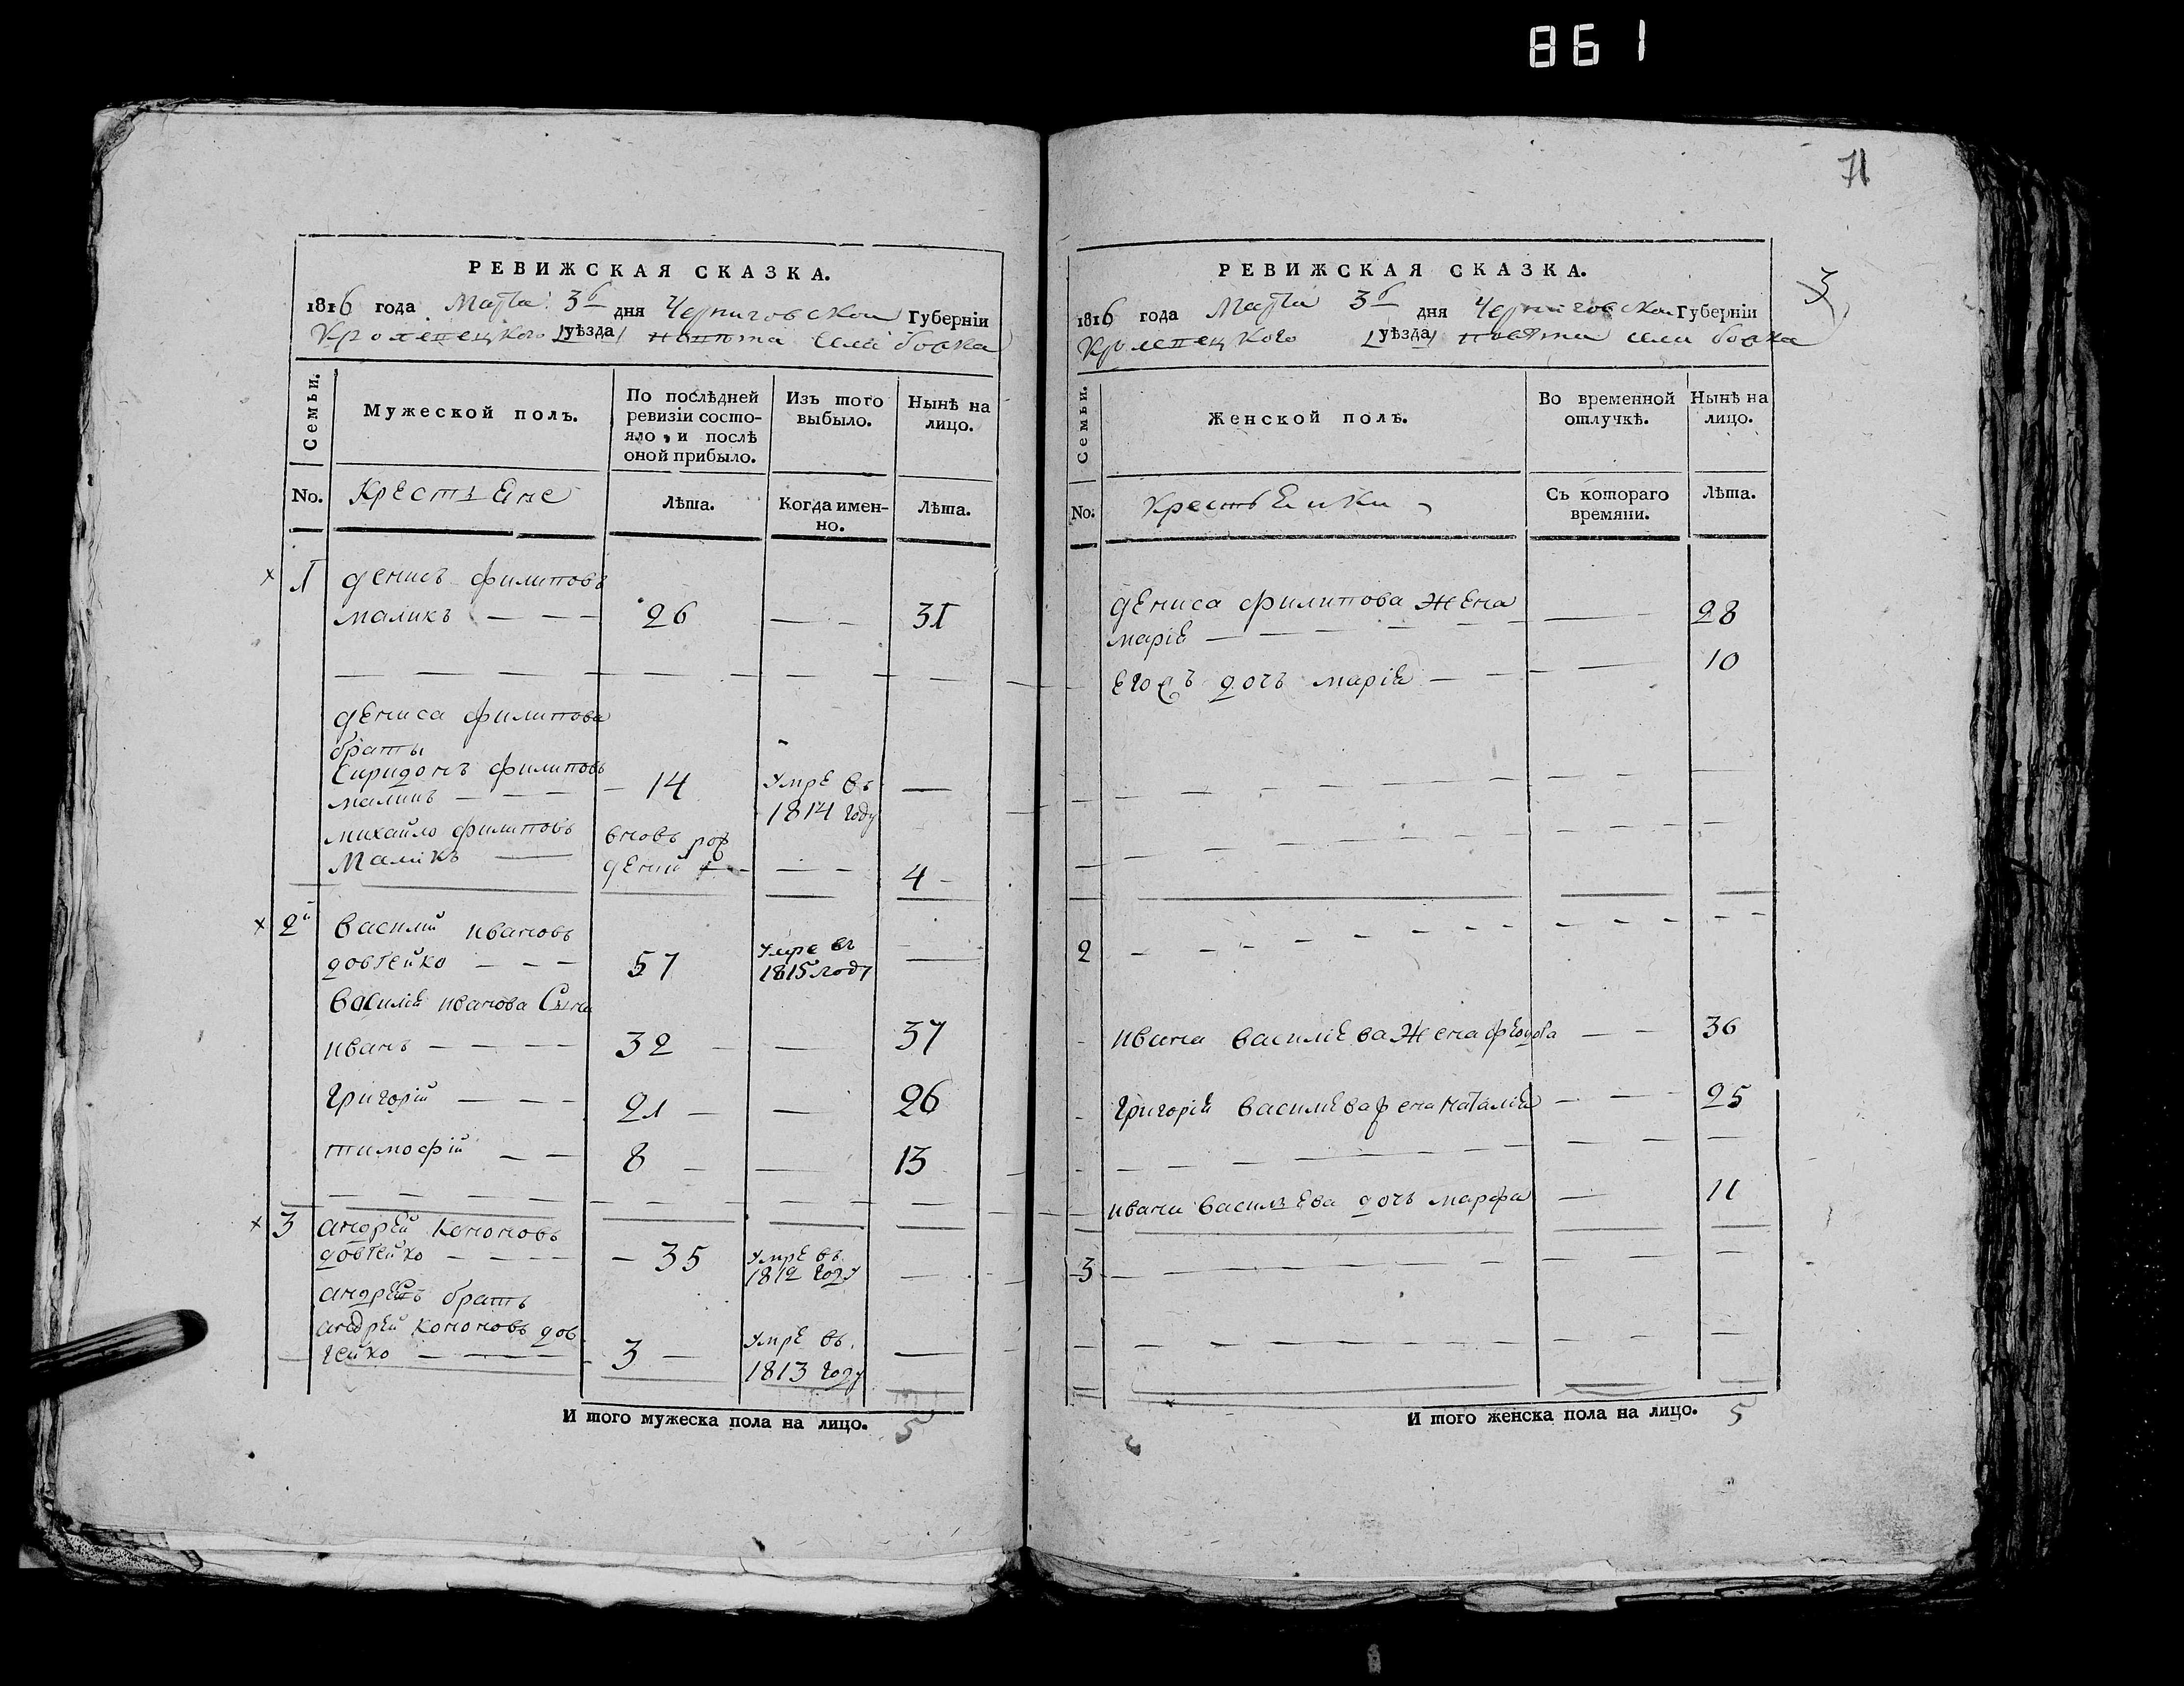 861
71
РЕВИЖСКАЯ СКАЗКА.
1816 года Марта 3 дня Черниговской Губерніи
Кролевецкого уѣзда повѣта села
Семьи.
Мужеской полъ.
По послѣдней ревизіи состо-
яло, и послѣ
оной прибыло.
Изъ того
выбыло.
Нынѣ на
лицо.
No.
Крестьяне
Лѣта.
Когда имен-
но.
Лѣта.
1 денисъ филиповъ
маликъ — — — 26 — — 31
дениса филипова
браты
Спиридонъ филиповъ
маликъ — — — 14 умре въ —
1814 году
михайло филиповъ вновь рож
Маликъ — денъ — — 4
2й василий ивановъ
довгейко — — — 57 умре въ —
1815 году
василия иванова Сына
иванъ — — — — 32 — — 37
григорий — — — 21 — — 26
тимофій — — 8 — — 13
3 андрей кононовъ
довгейко — — — — 35 умре въ
1812 году —
андрей братъ
андрей кононовъ дов
гейко — — — — 3 — умре въ
1813 году —
И того мужеска пола на лицо. 5
РЕВИЖСКАЯ СКАЗКА.
3
1816 года Марта 3 дня Черниговской Губерніи
Кролевецкого уѣзда повѣта села
Семьи.
Женской полъ.
Во временной
отлучкѣ.
Нынѣ на
лицо.
No.
Крестьянки
Съ котораго
времяни.
Лѣта.
дениса филипова жена
марія — — — 28
его дочь марія — — 10
2
ивана василиева жена — — 36
григория василиева жена наталия — — 25
ивана васильева дочь марфа — 11
3
И того женска пола на лицо. 5